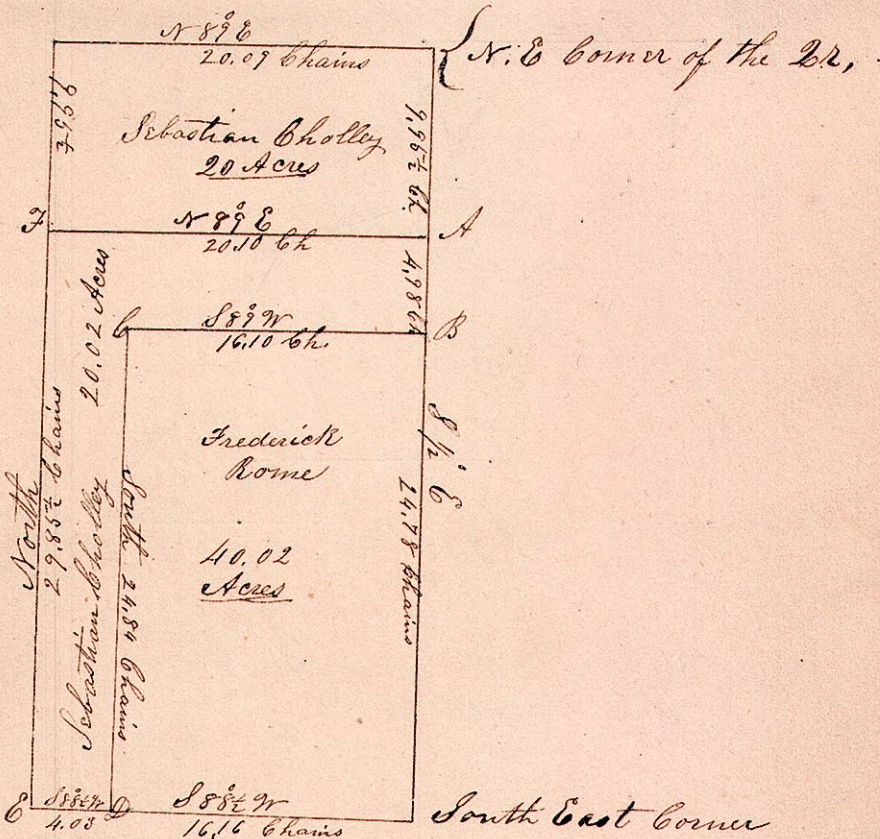 N 89° E
20.09 Chains
N. E Corner of the Qr,
Sebastian Cholley
20 Acres
9.96½ Ch.
F
N 89° E
20.10 Ch
A
4.98 Ch
C
S 89° W
16.10 Ch.
B
S ½° E
24.78 Chains
Frederick
Rome
40.02
Acres
North
29.85½ Chains
Sebastian Cholley 20.02 Acres
South 24.84 Chains
E
S 88½° W
4.03
D
S 88½° W
16.16 Chains
South East Corner